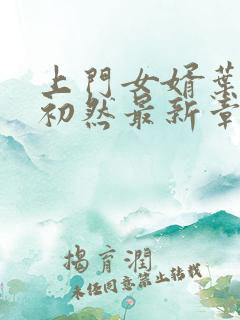 上門女婿葉
初然最新章
揭育潤
未經同意禁止轉載